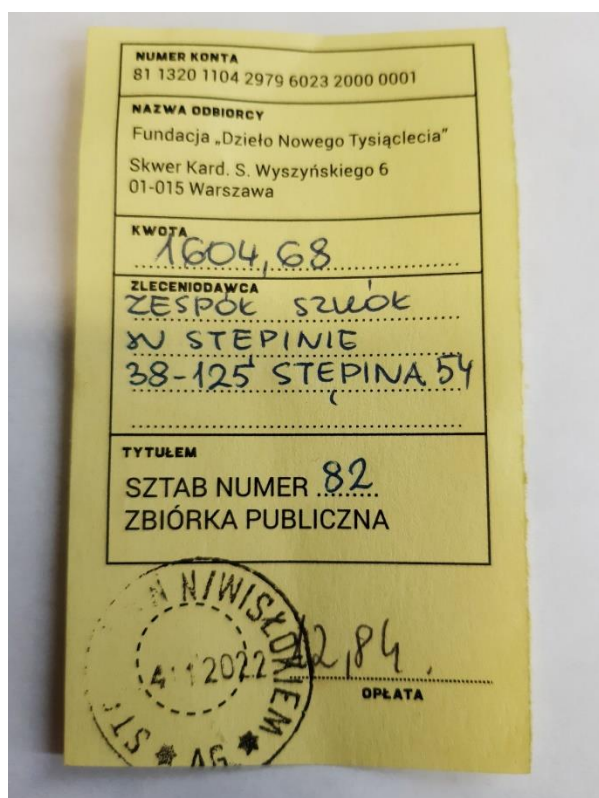 NUMER KONTA
81 1320 1104 2979 6023 2000 0001
NAZWA ODBIORCY
Fundacja „Dzieło Nowego Tysiąclecia”
Skwer Kard. S. Wyszyńskiego 6
01-015 Warszawa
KWOTA
1604,68
ZLECENIODAWCA
ZESPÓŁ SZKÓŁ
W STĘPINIE
38-125 STĘPINA 54
TYTUŁEM
SZTAB NUMER 82
ZBIÓRKA PUBLICZNA
N/WISŁOKIEM
2022
12,84
OPŁATA